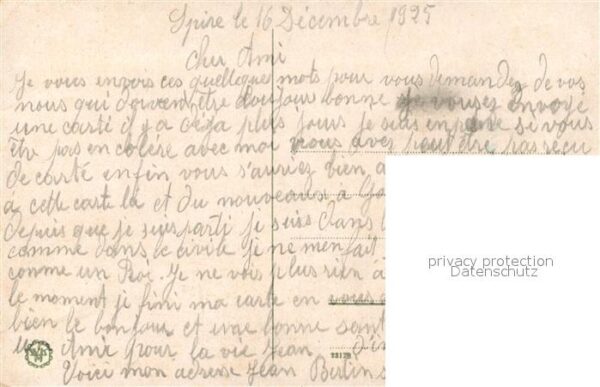 Spire le 16 Décembre 1925
Cher Ami
Je vous envois ces quelleque mots pour vous demandez de vos
nous qui doivent être toujour bonne je vousez envoye
une carté il y a déja plus jours je suis en peine si vous
ête pas en colère avec moi vous avez peut être pas reçu
de carté enfin vous s'auriez bien
à cette carte la et du nouveaux à
depuis que je suis parti je suis dans
comme dans le civile je ne men fait
comme un Roi. Je ne vois plus rien à
le moment je fini ma carte en vous
bien le bonjour et une bonne sant
un Ami pour la vie Jean
Voici mon adresse Jean Berlin
privacy protection
Datenschutz